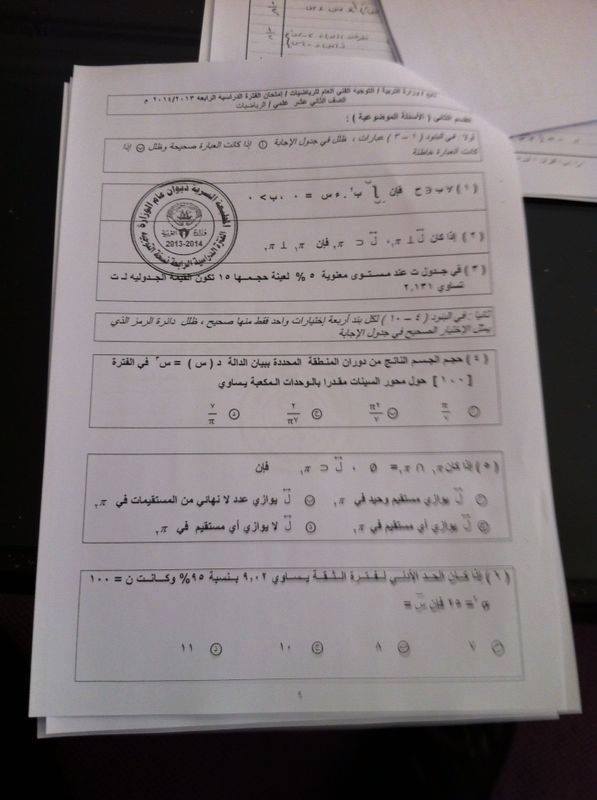 تابع / وزارة التربية / التوجيه الفني العام للرياضيات / إمتحان الفترة الدراسية الرابعة ٢٠١٤/٢٠١٣ م
الصف الثاني عشر علمي / الرياضيات
القسم الثاني ( الأسئلة الموضوعية ) :
أولا : في البنود ( ١ – ٣ ) عبارات ، ظلل في جدول الإجابة أ إذا كانت العبارة صحيحة وظلل ب إذا
كانت العبارة خاطئة
( ١ ) ∀ ب ∈ ح فإن ∫ ب٢ . ء س = ٠ ، ب > ٠
( ٢ ) إذا كان ل ⊥ π ، ل ⊂ π فإن π ⊥ π
( ٣ ) في جدول ت عند مستوى معنوية ٥ % لعينة حجمها ١٥ تكون القيمة الجدوليه لـ ت
تساوي ٢,١٣١
المطبعة السرية ديوان عام الوزارة
2013-2014
ثانيا : في البنود ( ٤ – ١٠ ) لكل بند أربعة إختيارات واحد فقط منها صحيح ، ظلل دائرة الرمز الذي
يمثل الإختيار الصحيح في جدول الإجابة
( ٤ ) حجم الجسم الناتج من دوران المنطقة المحددة ببيان الدالة د ( س ) = س٣ في الفترة
[ ١ ، ٠ ] حول محور السينات مقدرا بالوحدات المكعبة يساوي
أ π/٧ ب π٢/٧ ج ٢/π٧ د ٧/π
( ٥ ) إذا كان π ∩ π = Ø ، ل ⊂ π فإن
أ ل يوازي مستقيم وحيد في π ب ل يوازي عدد لا نهائي من المستقيمات في π
ج ل يوازي أي مستقيم في π د ل لا يوازي أي مستقيم في π
( ٦ ) إذا كان الحد الأدنى لفترة الثقة يساوي ٩,٠٢ بنسبة ٩٥% وكانت ن = ١٠٠
σ٢ = ٢٥ فإن س =
أ ٧ ب ٨ ج ١٠ د ١١